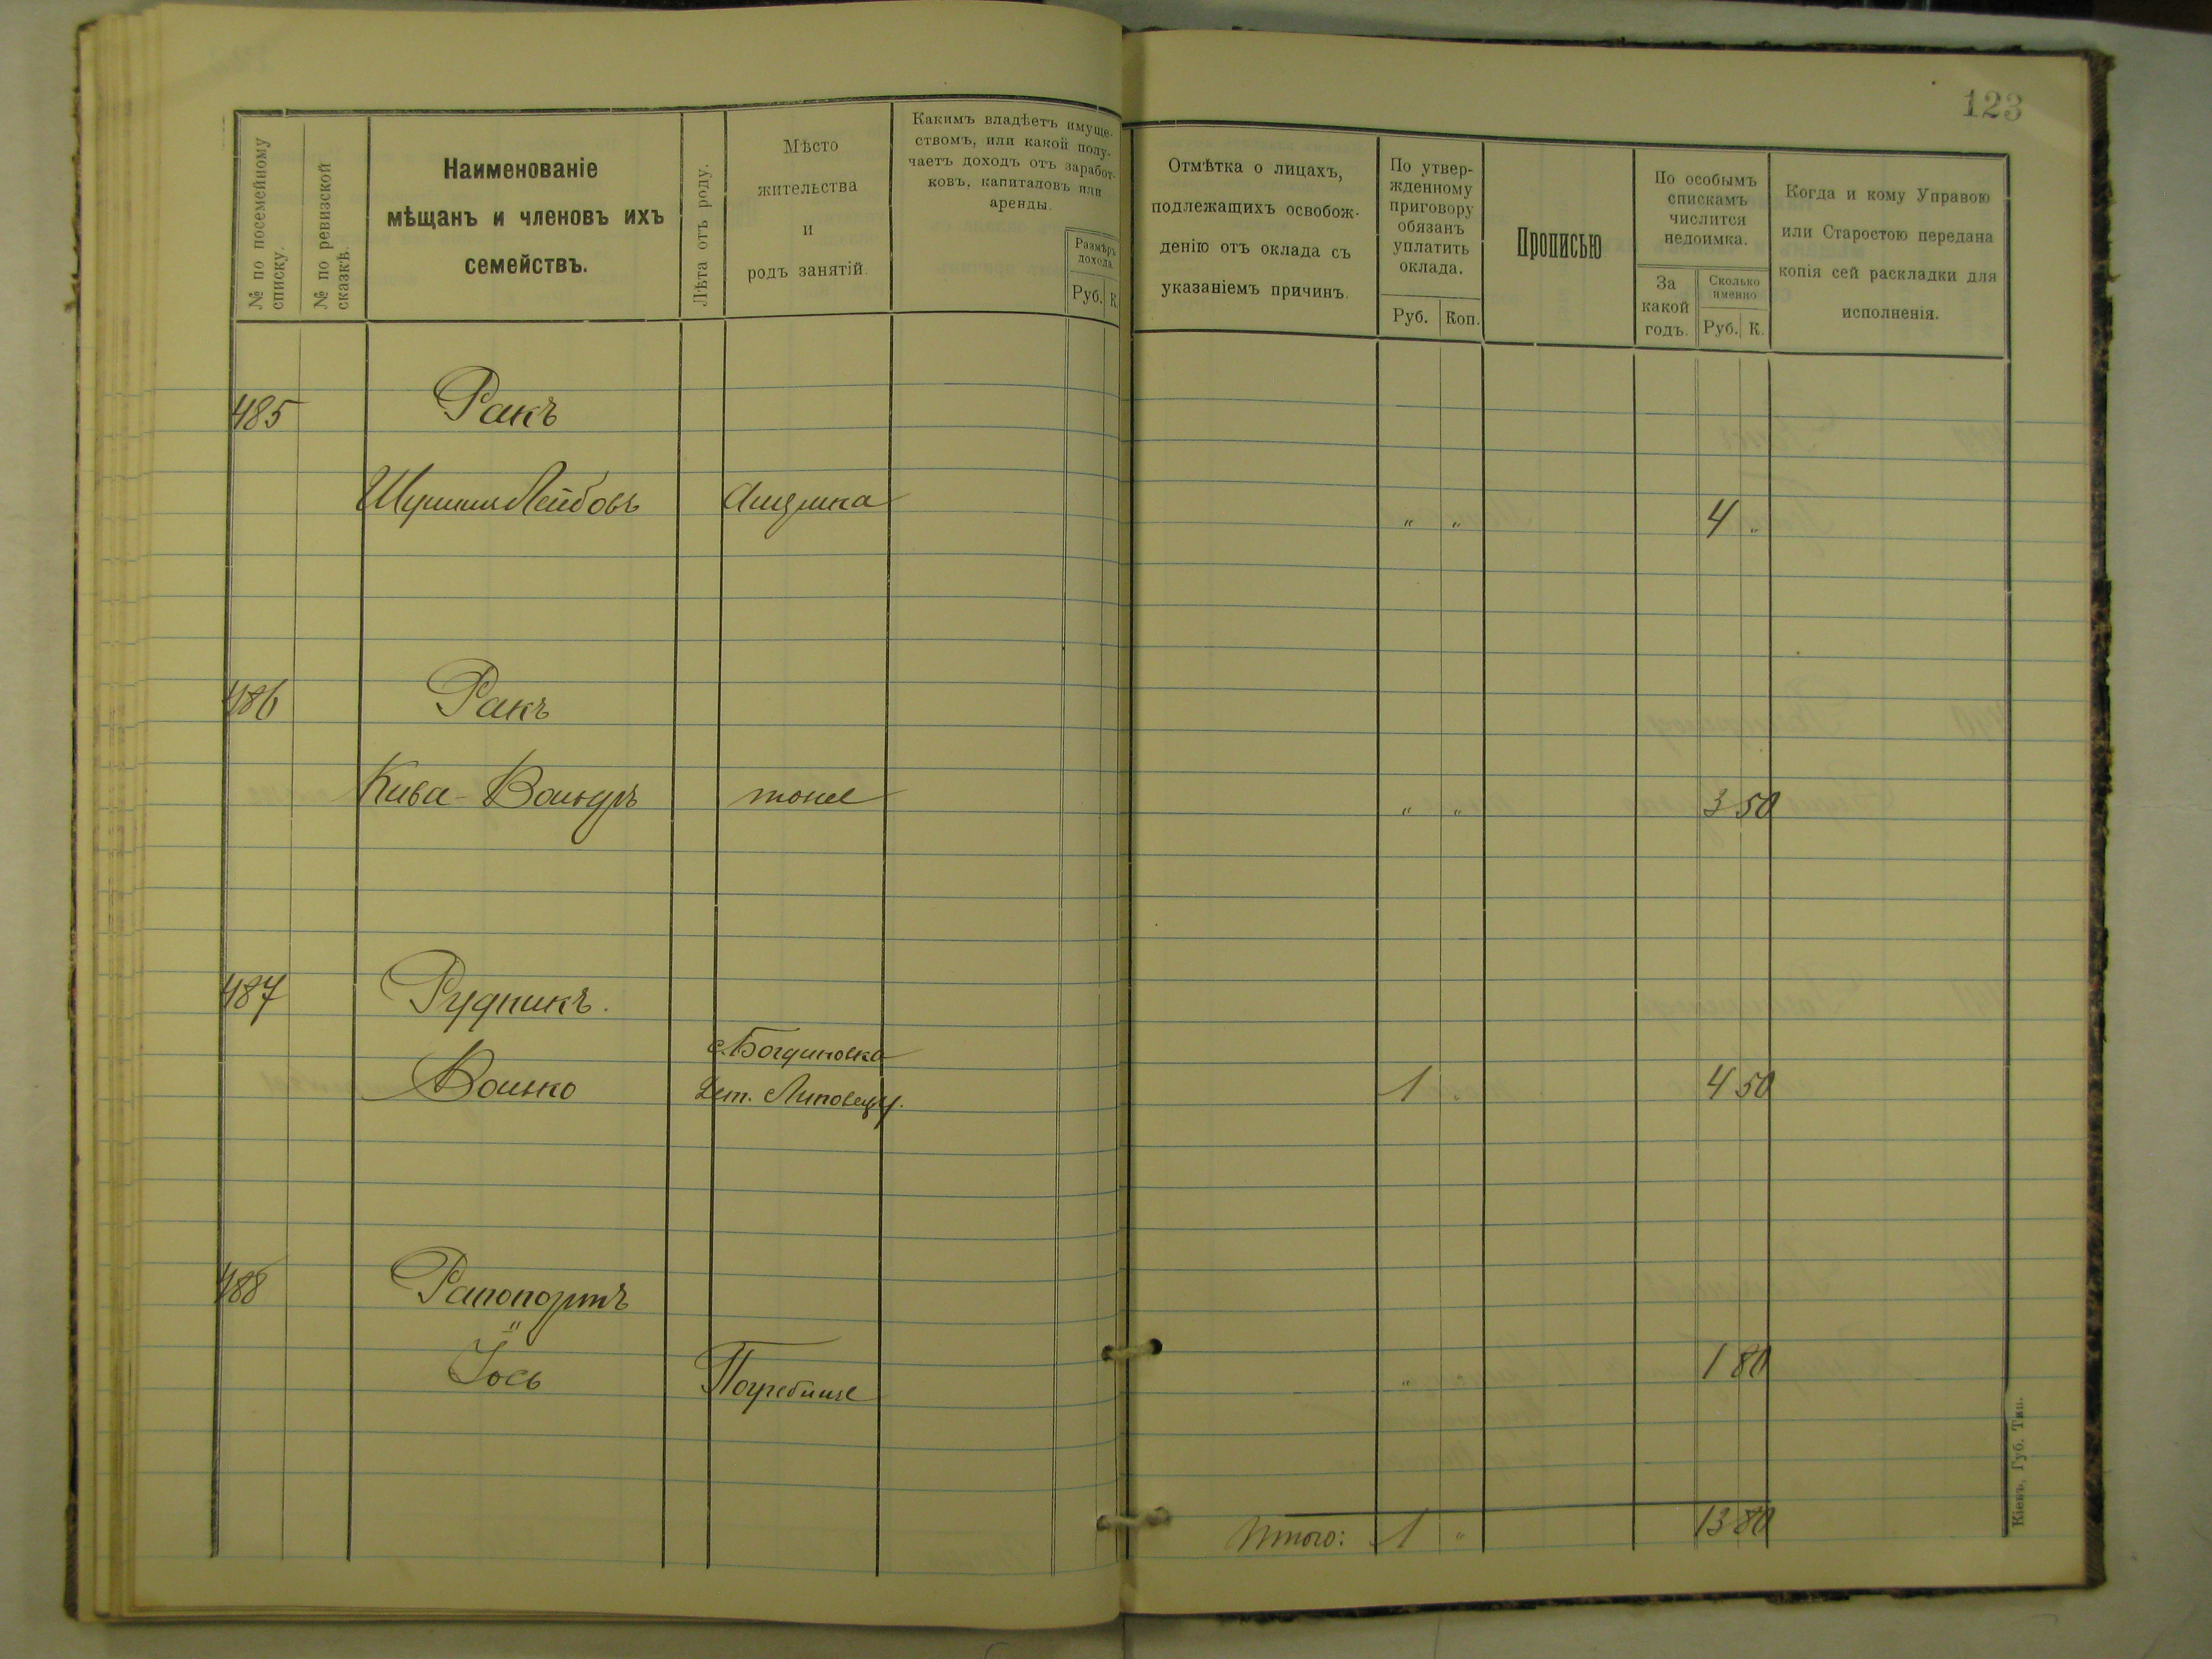 123
№ по посемейному списку.
№ по ревизской сказкѣ.
Наименованіе
мѣщанъ и членовъ ихъ
семействъ.
Лѣта отъ роду.
Мѣсто
жительства
и
родъ занятій.
Какимъ владѣетъ имуще-
ствомъ, или какой полу-
чаетъ доходъ отъ заработ-
ковъ, капиталовъ или
аренды.
Размѣръ
дохода.
Руб. К.
Отмѣтка о лицахъ,
подлежащихъ освобож-
денію отъ оклада съ
указаніемъ причинъ.
По утвер-
жденному
приговору
обязанъ
уплатить
оклада.
Руб. Коп.
Прописью
По особымъ
спискамъ
числится
недоимка.
За
какой
годъ.
Сколько
именно
Руб. К.
Когда и кому Управою
или Старостою передана
копія сей раскладки для
исполненія.
485 Ракъ
Лейбовъ " " 4 "
486 Ракъ
Кива - Вольфъ тоже " " 3 50
487 Рудникъ.
с. Богдановка
Волько Липовец у. 1 " 4 50
488 Рапопортъ
"
Іось Погребище " 1 80
Итого: 1 " 13 80
Кіевъ, Губ. Тип.